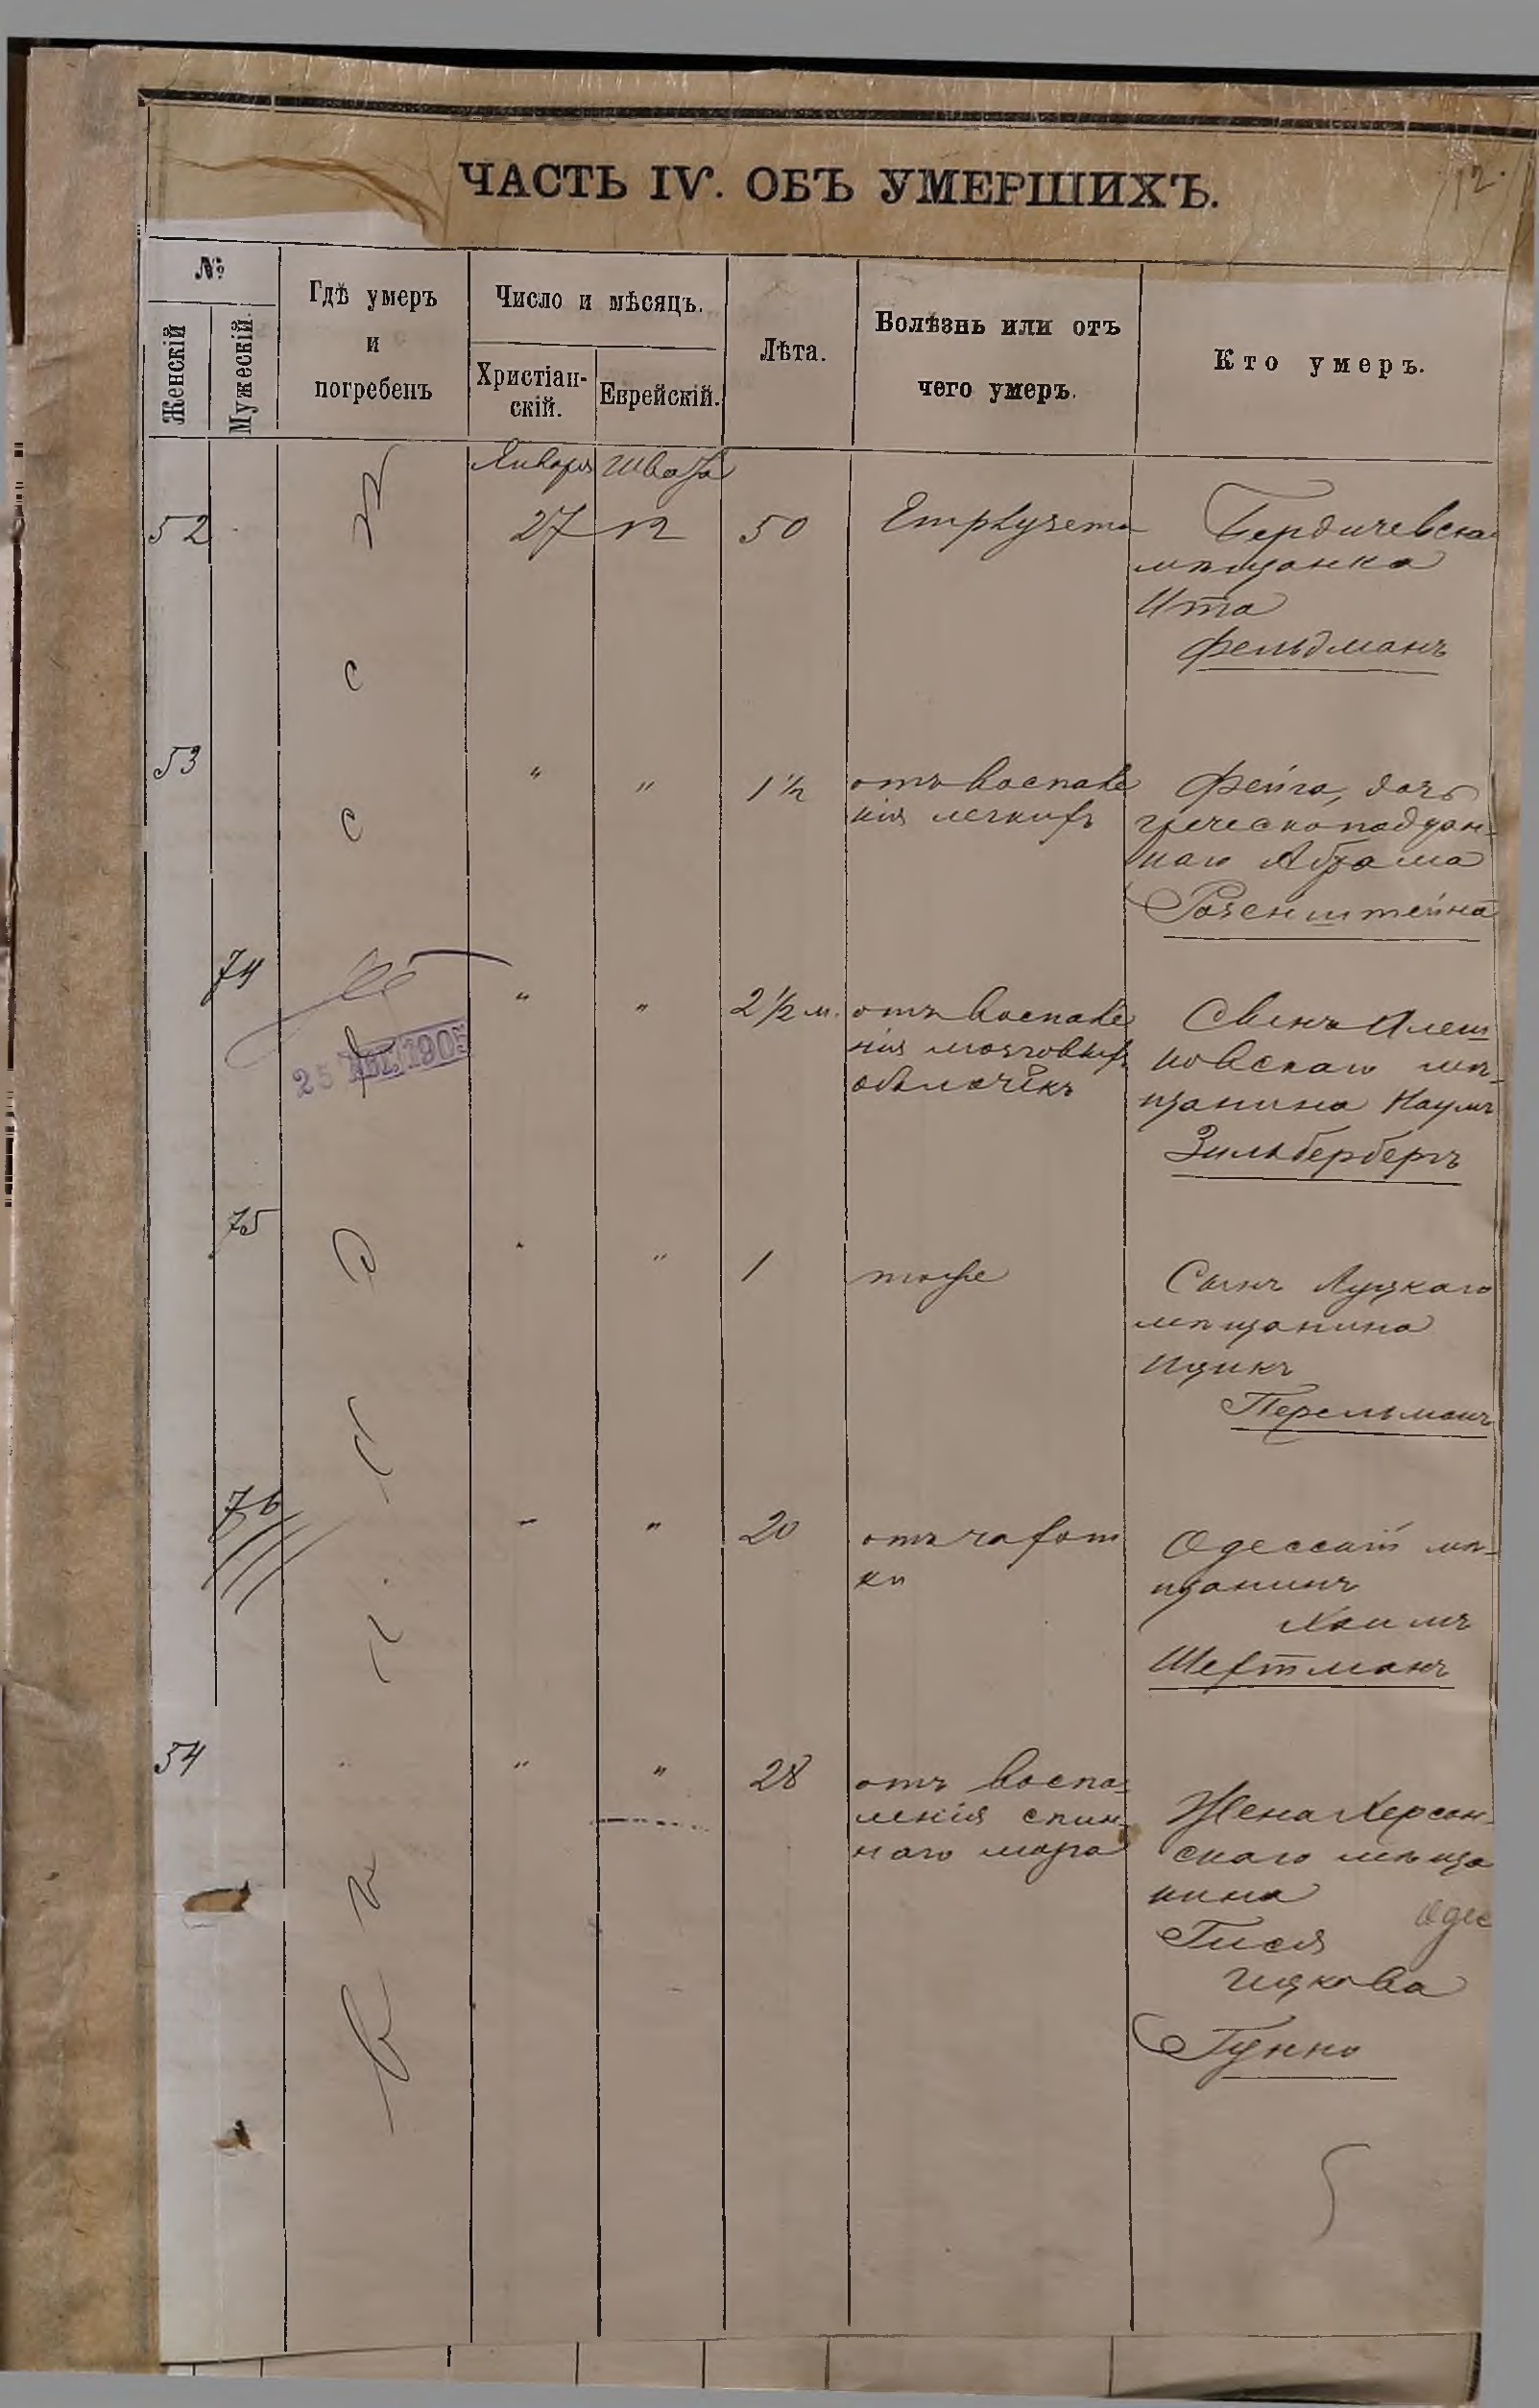 12.
ЧАСТЬ IV. ОБЪ УМЕРШИХЪ.
№
Женскій
Мужескій.
Гдѣ умеръ
и
погребенъ
Число и мѣсяцъ.
Христіан-
скій.
Еврейскій.
Лѣта.
Болѣзнь или отъ
чего умеръ.
Кто умеръ.
Января Швата
52 27 12 50 Emphysema Бердичевская
мѣщанка
Ита
Фельдманъ
53 " " 1½ отъ воспале
нія легкихъ
Фейга, дочь
греческоподдан-
наго Абрама
Розенштейна
74 " " 2½ м. отъ воспале
нія мозговыхъ
оболочекъ
Сынъ Алеш
ковскаго мѣ-
щанина Наумъ
Зильбербергъ
25 АВГ. 1905
75 " " 1 тоже
Сынъ Луцкаго
мѣщанина
Ицикъ
Перельманъ
76 " " 20 отъ чахот
ки
Одесскій мѣ-
щанинъ
Хаимъ
Шехтманъ
54 " " 28 отъ воспа-
ленія спин-
наго мозга
Жена Херсон-
скаго мѣща
нина
Одес
Гися
Ицкова
Гунко